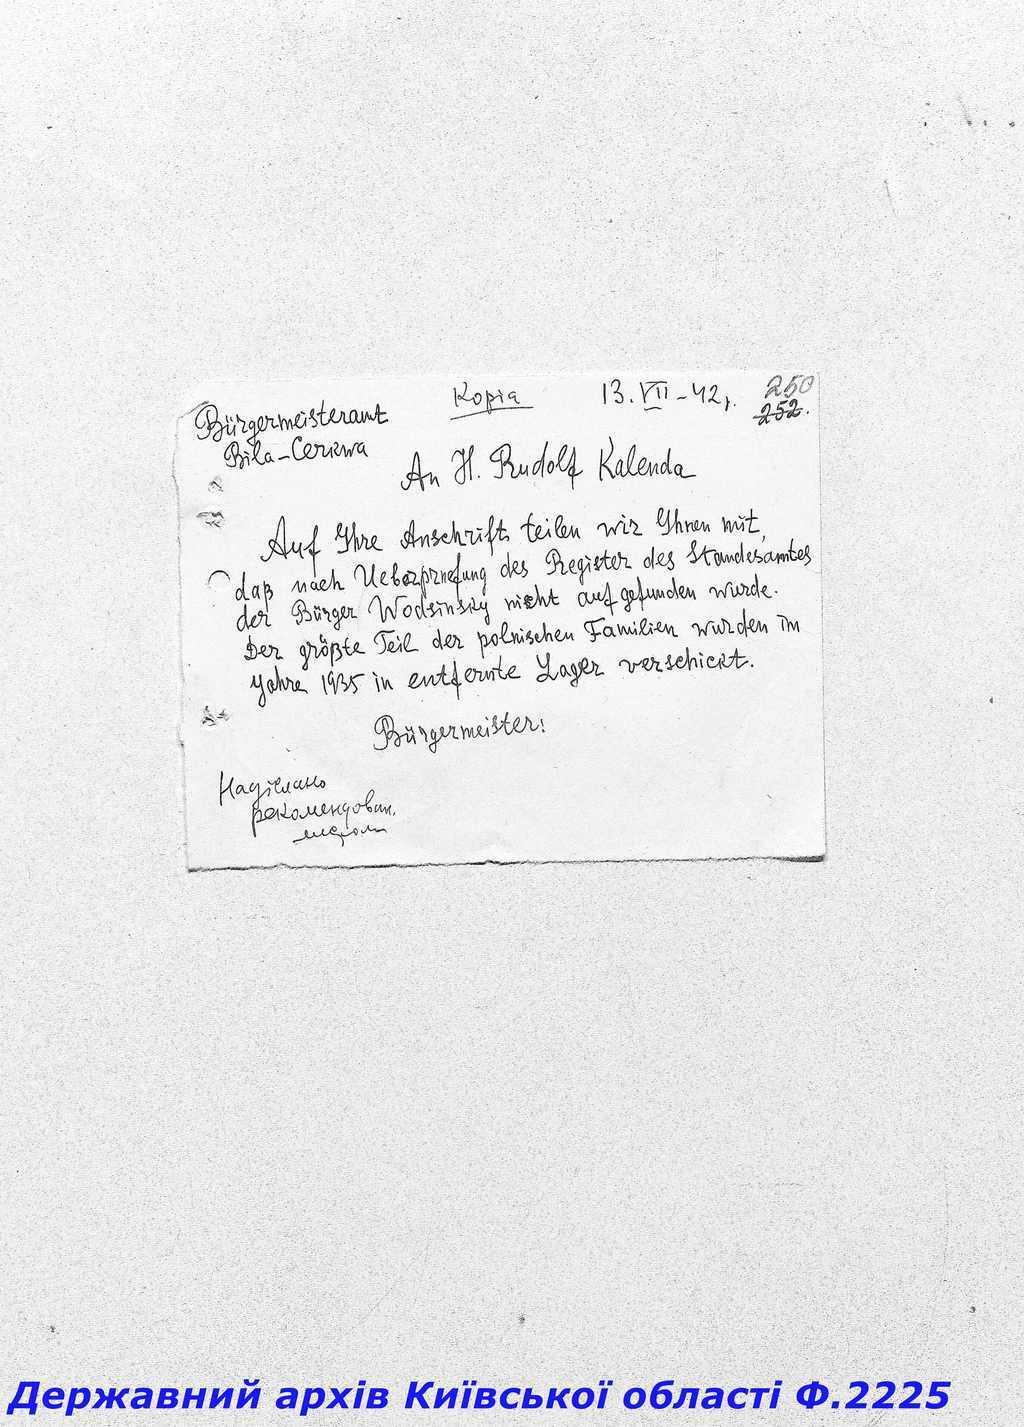 Kopia
13.VII-42р.
250
252.
Bürgermeisteramt
Bila-Cerkwa
An H. Rudolf Kalenda
Auf Ihre Anschrift teilen wir Ihnen mit,
daß nach Ueberpruefung des Register des Standesamtes
der Bürger Wodsinsky nicht aufgefunden wurde.
Der größte Teil der polnischen Familien wurden im
Jahre 1935 in entfernte Lager verschickt.
Bürgermeister:
Надіслано
рекомендован.
Державний архів Київської області Ф.2225